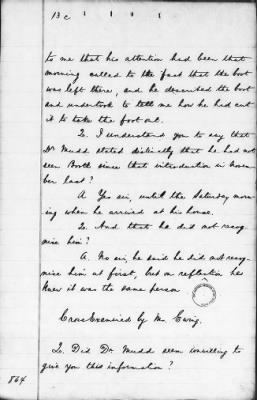 13 c
to me that his attention had been that
morning called to the fact that the boot
was left there, and he described the boot
and undertook to tell me how he had cut
it to take the foot out.
Q. I understand you to say that
Dr Mudd stated distinctly that he had not
seen Booth since that introduction in Novem
ber last?
A Yes sir, until the Saturday mor
ing when he arrived at his house.
Q. And that he did not recog
nise him?
A. No sir, he said he did not recog
nise him at first, but on reflection he
knew it was the same person
Cross Examined by Mr Ewing.
Q. Did Dr. Mudd seem unwilling to
give you this information?
564